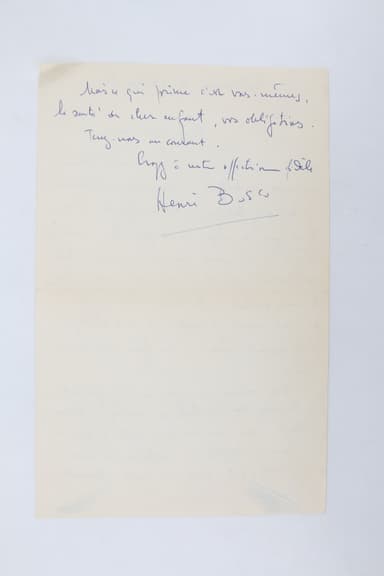 Mais ce qui prime c'est vous-mêmes,
la santé du cher enfant, vos obligations.
Tenez-nous au courant.
Croyez à notre affection fidèle
Henri Bosco